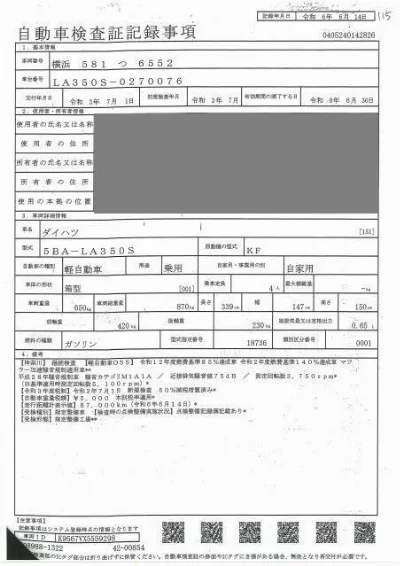 記録年月日 令和 6年 6月14日
115
自動車検査証記録事項
0405240142826
1. 基本情報
車両番号 横浜 581 つ 6552
車台番号 LA350S-0270076
交付年月日 令和 3年 7月 1日 初度検査年月 令和 3年 7月 有効期間の満了する日 令和 8年 6月 30日
2. 使用者・所有者情報
使用者の氏名又は名称
使用者の住所
所有者の氏名又は名称
所有者の住所
使用の本拠の位置
3. 車両詳細情報
車名 ダイハツ [151]
型式 5BA-LA350S 原動機の型式 KF
自動車の種別 軽自動車 用途 乗用 自家用・事業用の別 自家用
車体の形状 箱型 [001] 乗車定員 4人 最大積載量 -kg
車両重量 650kg 車両総重量 870kg 長さ 339cm 幅 147cm 高さ 150cm
前軸重 420kg 後軸重 230kg 総排気量又は定格出力 0.65 L
燃料の種類 ガソリン 型式指定番号 18736 類別区分番号 0001
4. 備考
【神奈川】 継続検査 【軽自動車OSS】 令和12年度燃費基準85%達成車 令和2年度燃費基準140%達成車 マフ
ラー加速騒音規制適用車**
平成28年騒音規制車 騒音カテゴリM1A1A / 近接排気騒音値75dB / 測定回転数3,750rpm*
【令和3年度税制】令和3年7月1日 新規検査 50%減税措置済み*
【自動車重量税額】¥5,000 本則税率適用*
【走行距離計表示値】87,000km(令和6年6月14日)*
【受検種別】指定整備車 【検査時の点検整備実施状況】点検整備記録簿記載あり*
【受検形態】指定整備工場**
【注意事項】
記録事項はシステム登録時点の情報となります
車両ID K9567YX5559298
3988-1322 42-00854